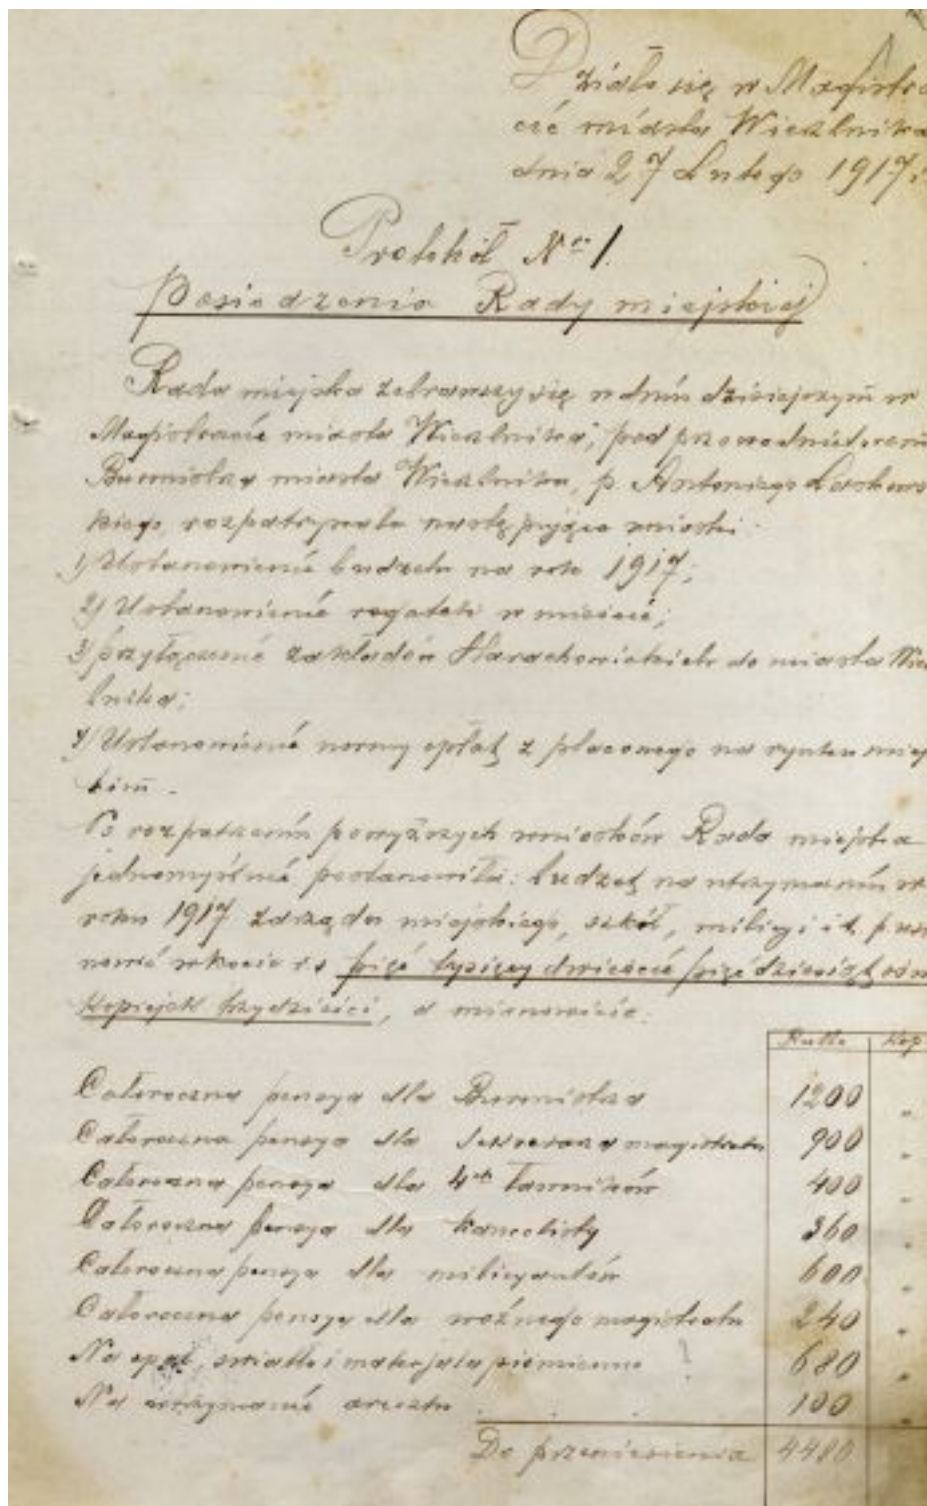 Działo się w Magistra
cie miasta Wierzbnika
dnia 27 Lutego 1917 r
Protokół No 1.
Posiedzenia Rady miejskiej
Rada miejska zebrawszy się w dniu dzisiejszym w
Magistracie miasta Wierzbnika, pod przewodnictwem
Burmistrza miasta Wierzbnika, p. Antoniego Laskows
kiego, rozpatrywała następujące wnioski:
1) Ustanowienie budżetu na rok 1917;
2) Ustanowienie rogatek w mieście;
3) przyłączenie zakładów Starachowickich do miasta Wierz
bnika;
4) Ustanowienie normy opłat z placowego na rynku miej
skim.
Po rozpatrzeniu powyższych wniosków Rada miejska
jednomyślnie postanowiła: budżet na utrzymaniu w
roku 1917 zarządu miejskiego, szkół, milicyi i t. p.
kwocie rs pięć tysięcy dwieście pięćdziesiąt ośm
kopiejek trzydzieści, a mianowicie:
Ruble Kop
Całoroczna pensya dla Burmistrza 1200 "
Całoroczna pensya dla Sekretarza magistratu 900 "
Całoroczna pensya dla 4ch ławników 400 "
Całoroczna pensya dla kancelisty 360 "
Całoroczna pensya dla milicyantów 600 "
Całoroczna pensya dla woźnego magistratu 240 "
Na opał, światło i materjały piśmienne ? 680 "
Na utrzymanie aresztu . . . 100 "
Do przeniesienia 4480